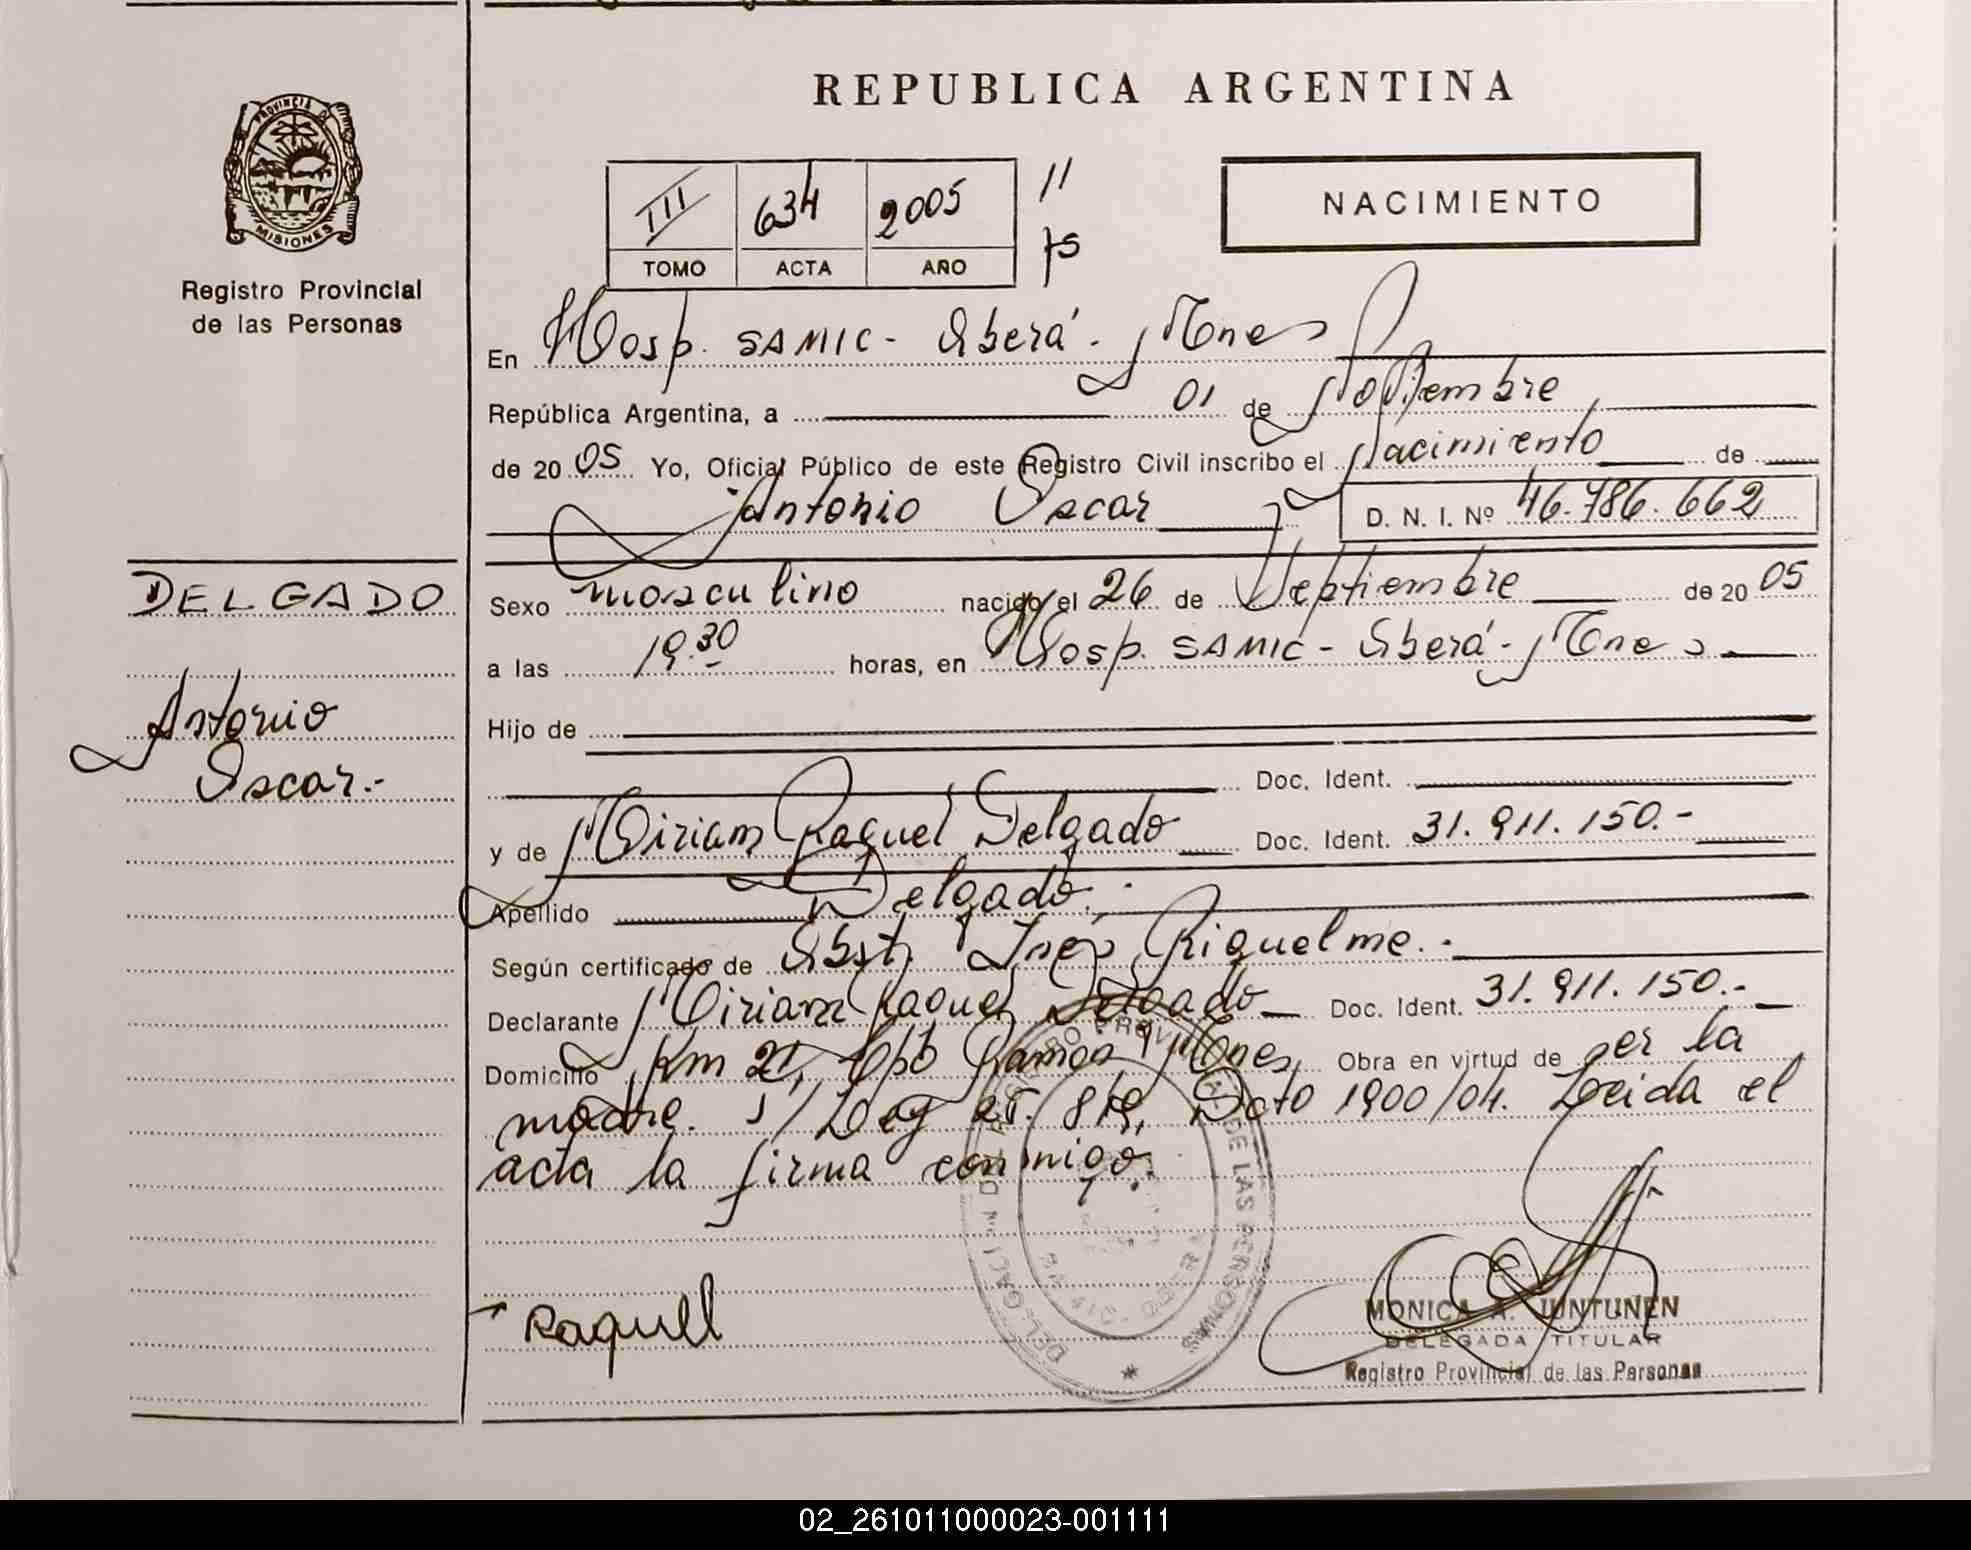 REPUBLICA ARGENTINA
PROVINCIA DE
MISIONES
Registro Provincial
de las Personas
III 634 2005 //
TOMO ACTA AÑO
NACIMIENTO
En Hosp. SAMIC - Oberá - Mnes
República Argentina, a 01 de Noviembre
de 20 05 Yo, Oficial Público de este Registro Civil inscribo el Nacimiento de
Antonio Oscar D. N. I. Nº 46.786.662
DELGADO
Antonio
Oscar.-
Sexo masculino nacido el 26 de Septiembre de 20 05
a las 19.30 horas, en Hosp. SAMIC - Oberá - Mnes
Hijo de
Doc. Ident.
y de Miriam Raquel Delgado Doc. Ident. 31.911.150.-
Apellido Delgado.-
Según certificado de Obst. Inés Riquelme.-
Declarante Miriam Raquel Delgado Doc. Ident. 31.911.150.-
Domicilio Km 21, Cpo Ramón Mnes Obra en virtud de ser la
madre. s/ Leg 819, Dcto 1900/04. Leida el
acta la firma conmigo.
Raquell
MONICA A. JUNTUNEN
DELEGADA TITULAR
Registro Provincial de las Personas
02_261011000023-001111